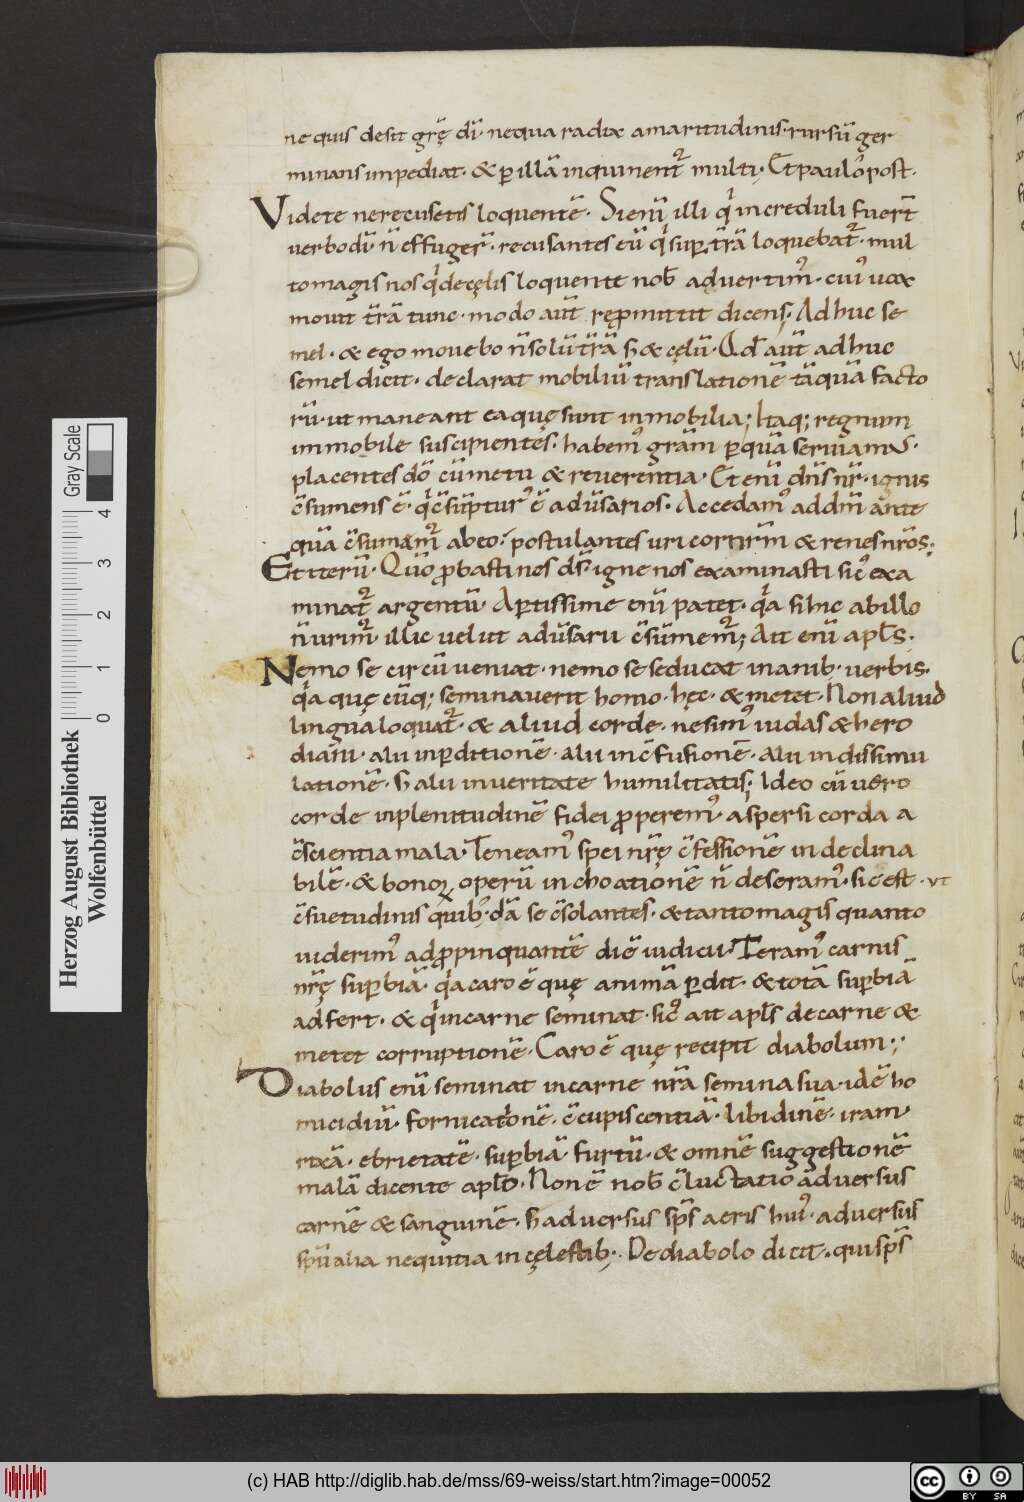 ne quis desit grę̄ dī· ne qua radix amaritudinis· rursū ger
minans impediat· & ꝑ illā inquinent᷑ multi· Et paulo post·
Videte ne recusetis loquentē· Si enī illi qi increduli fuer̄t
verbo dī· n̄ effuger̄· recusantes eū qi suꝑ tr̄ā loquebat᷑· mul
to magis nos qi de cęlis loquente nob̄ advertimꝰ· cuiꝰ vox
movit tr̄ā tunc· modo aūt reꝓmittit dicens· Adhuc se
mel· & ego movebo n̄ solū tr̄ā sꝫ & cęlū· Qd̄ aūt adhuc
semel dicit· declarat mobiliū translationē tāquā facto
rū· ut maneant ea quę sunt inmobilia; Itaq; regnum
immobile suscipientes· habemꝰ grām ꝑ quā serviamꝰ·
placentes dō cū metu & reverentia· Etenī dn̄s nr̄· ignis
c̄sumens ē· qi c̄sūpturꝰ ē adūsarios· Accedamꝰ ad dn̄m ante
quā c̄sumam᷑ ab eo· postulantes uri cor nr̄m & renes nr̄os;
Et iterū· Qūo ꝓbasti nos dꝰs· igne nos examinasti sicꝰ exa
minat᷑ argentū· Aꝑtissime enī patet· qa si hic ab illo
n̄ urim᷑ illic velut adūsarii c̄sūmem᷑; Ait enī apl̄s·
Nemo se circūveniat· nemo se seducat inanib· verbis·
qa quę cūq; seminaverit homo· hęc· & metet· Non aliud
lingua loquat᷑· & aliud corde· ne simꝰ iudas & hero
diani· alii in ꝑditionē· alii in c̄fusionē· alii in dissimu
lationē· sꝫ alii in veritate humilitatis; Ideo cū vero
corde in plenitudinē fidei ꝓperemꝰ· aspersi corda a
c̄scientia mala· Teneamꝰ spei nr̄ę c̄fessionē indeclina
bilē· & bonoꝝ operū inchoationē n̄ deseramꝰ· sic est· vt
c̄suetudinis quibꝰdā se c̄solantes· & tanto magis quanto
viderimꝰ adꝓpinquantē diē iudicii· Teramꝰ carnis
nr̄ę suꝑbiā· qa caro ē quę animā ꝑdit· & totā suꝑbiā
adfert· & qi in carne seminat· sicꝰ ait apl̄s de carne &
metet corruptionē· Caro ē quę recipit diabolum;
Diabolus enī seminat in carne nr̄a semina sua· idē ho
micidiū· fornicationē· c̄cupiscentiā· libidinē· iram·
rixā· ebrietatē· suꝑbiā· furtū· & omnē suggestionē
malā dicente aplō· Non ē nob̄ c̄luctatio adversus
carnē & sanguinē· sꝫ adversus sp̄s aeris huiꝰ· adversus
sp̄ūalia nequitia in cęlestib;· De diabolo dicit· qui sp̄s
Herzog August Bibliothek
Wolfenbüttel
Gray Scale
0 1 2 3 4
(c) HAB http://diglib.hab.de/mss/69-weiss/start.htm?image=00052
cc BY SA